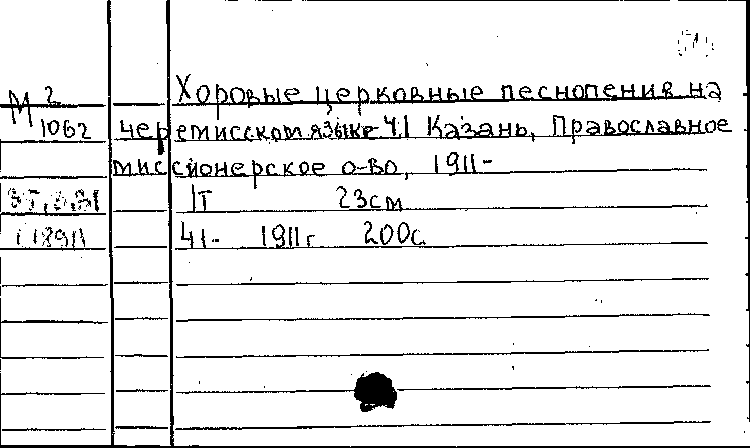 М 2
1062
Хоровые церковные песнопения на
черемисском языке Ч.1 Казань, Православное
миссионерское о-во, 1911-
1т 23см
Ч1- 1911г 200с.